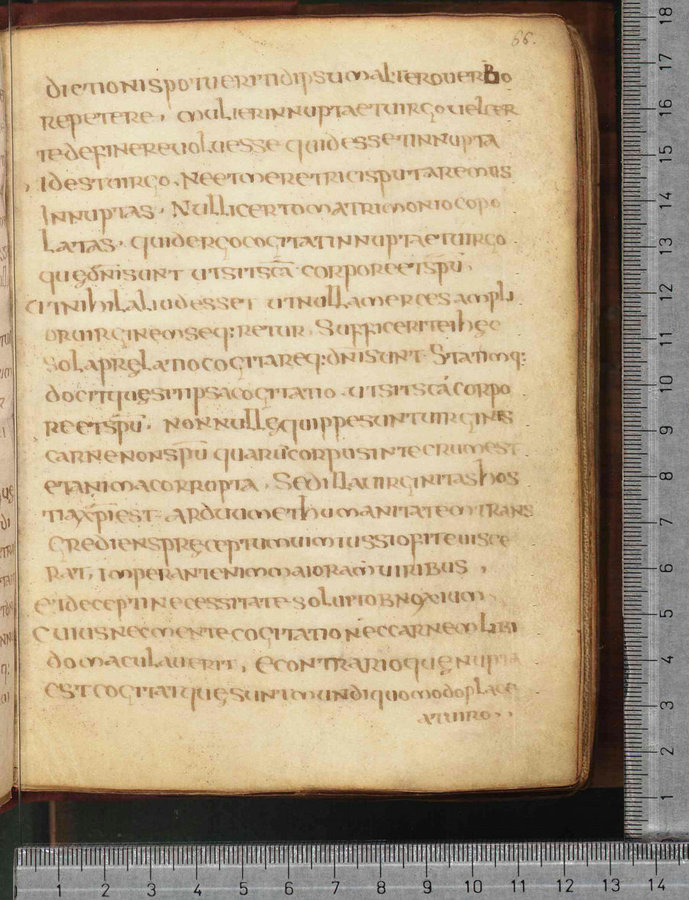 66.
dictionis potuerit idipsum alter o uerbo
repetere, mulier innupta et uirgo uel cer
te definere uoluesse quid esset innupta
idest uirgo. Ne et meretricis putaremus
Innuptas. Nulli certo matrimonio copo
latas. quid ergo cogitat innupta et uirgo
quę dn̄i sunt ut sit sc̄a corpore et sp̄u,
ut nihil aliud esset ut nulla merces ampli
or uirginem seq:retur. Sufficerit ei hęc
sola pręlatio cogitare q: dn̄i sunt. Statimq:
docit quę sit ipsa cogitatio. ut sit sc̄a corpo
re et sp̄u. non nullę quippe sunt uirginis
carne non sp̄u quarū corpus intecrum est
et anima corrupta. Sed illa uirginitas hos
tia xp̄i est. arduum et humanitatem trans
grediens pręceptum uim iussio fiteuisce
rat, imperantenim maiora uiribus,
et ideceptinecessitate solutobnoxium
Cuius nec mente cogitatio nec carnem libi
do maculauerit, Econtrario quę nupta
est cogitat quę sunt mundi quomodo place
at uiro..
1 2 3 4 5 6 7 8 9 10 11 12 13 14
18
17
16
15
14
13
12
11
10
9
8
7
6
5
4
3
2
1